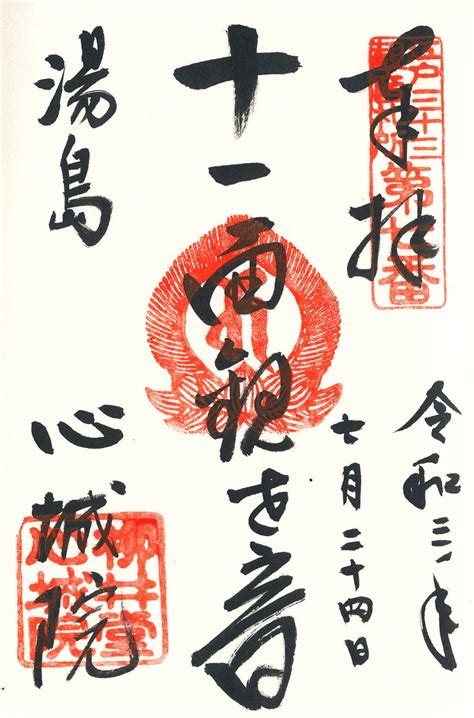 奉拝
江戸三十三観音札所第七番
令和三年
七月二十四日
十一面観世音
湯島
心城院
柳井堂心城院